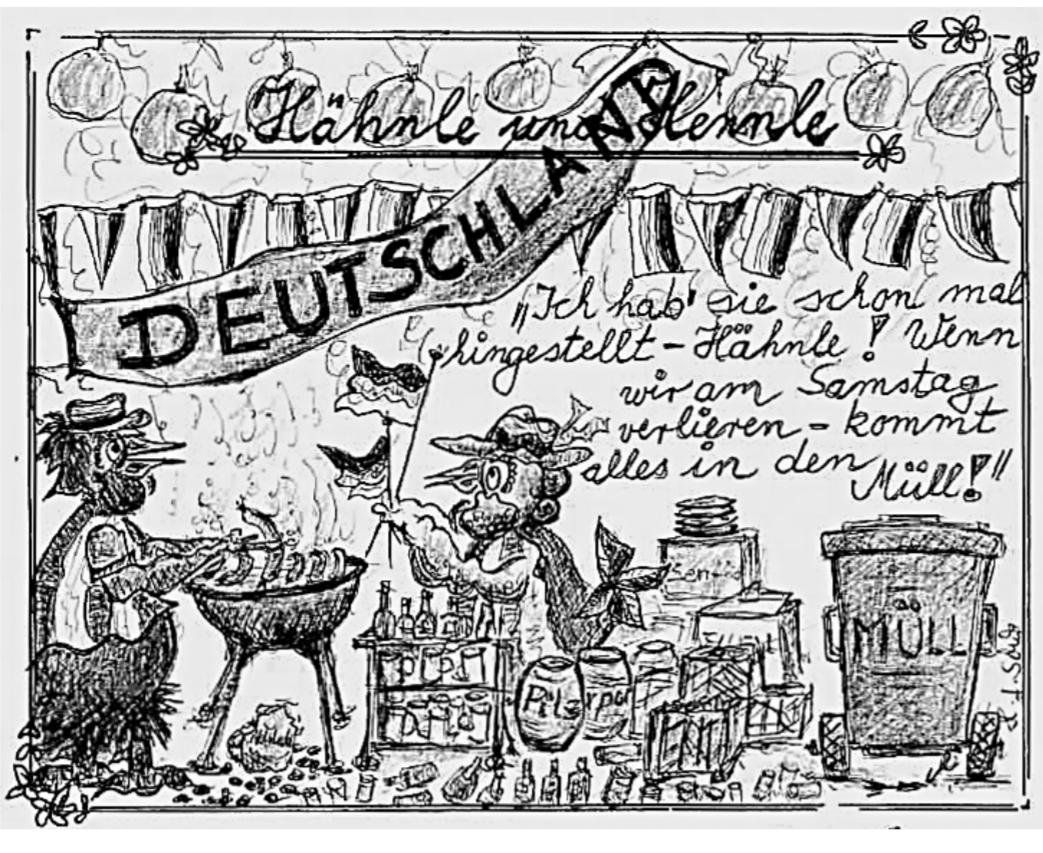 Hähnle und Hennle
DEUTSCHLAND
„Ich hab' sie schon mal
hingestellt – Hähnle! Wenn
wir am Samstag
verlieren – kommt
alles in den
Müll!"
Senf
Pils
MÜLL